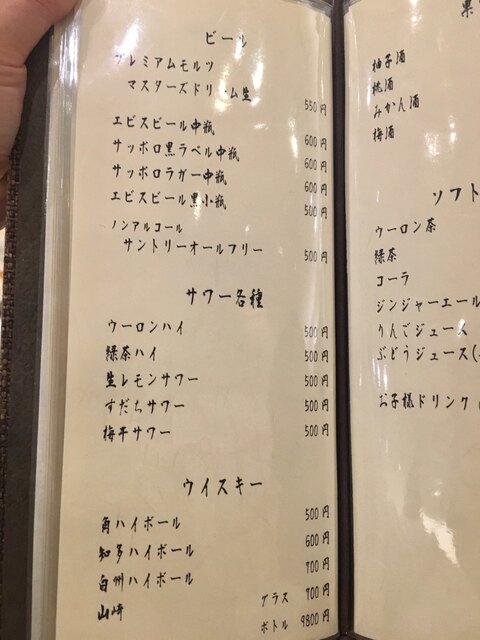 ビール
プレミアムモルツ
マスターズドリーム生 550円
エビスビール中瓶 600円
サッポロ黒ラベル中瓶 600円
サッポロラガー中瓶 600円
エビスビール黒小瓶 500円
ノンアルコール
サントリーオールフリー 500円
サワー各種
ウーロンハイ 500円
緑茶ハイ 500円
生レモンサワー 500円
すだちサワー 500円
梅干サワー 500円
ウイスキー
角ハイボール 500円
知多ハイボール 600円
白州ハイボール 700円
山崎 グラス 700円
ボトル 9800円
果
柚子酒
桃酒
みかん酒
梅酒
ソフト
ウーロン茶
緑茶
コーラ
ジンジャーエール
りんごジュース
ぶどうジュース(
お子様ドリンク(